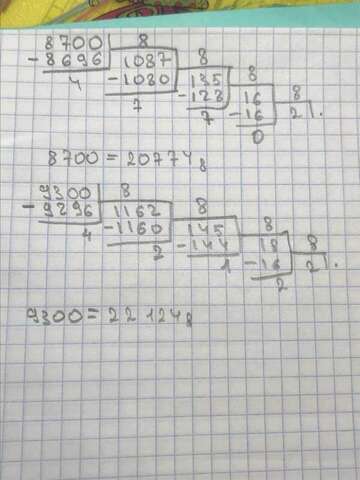 8700 8
-8696 1087 8
4 -1080 135 8
7 -128 16 8
7 -16 2.
0
8700 = 20774₈
9300 8
-9296 1162 8
4 -1160 145 8
2 -144 18 8
1 -16 2.
2
9300 = 22124₈